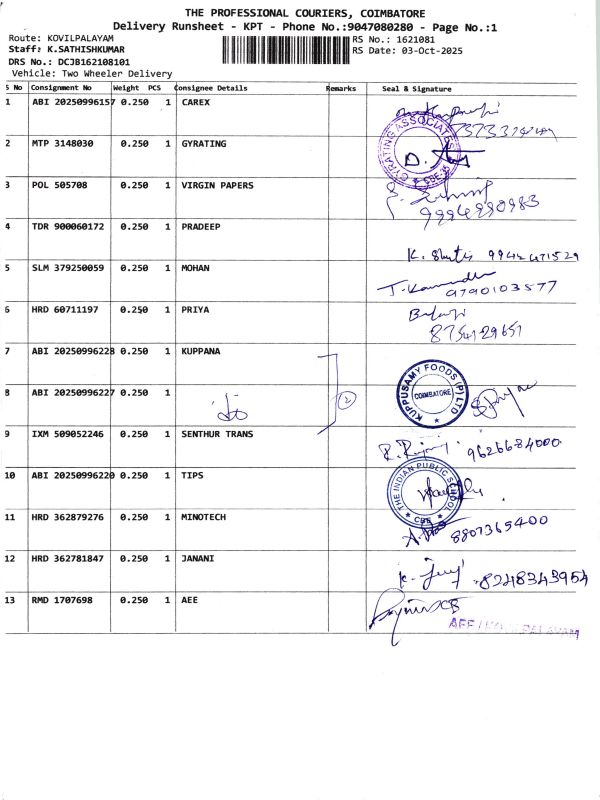 THE PROFESSIONAL COURIERS, COIMBATORE
Delivery Runsheet - KPT - Phone No.:9047080280 - Page No.:1
Route: KOVILPALAYAM RS No.: 1621081
Staff: K.SATHISHKUMAR RS Date: 03-Oct-2025
DRS No.: DCJB162108101
Vehicle: Two Wheeler Delivery
S No Consignment No Weight PCS Consignee Details Remarks Seal & Signature
1 ABI 20250996157 0.250 1 CAREX
2 MTP 3148030 0.250 1 GYRATING GYRATING ASSOCIATES
3 POL 505708 0.250 1 VIRGIN PAPERS
9994990983
4 TDR 900060172 0.250 1 PRADEEP
5 SLM 379250059 0.250 1 MOHAN
9790103577
6 HRD 60711197 0.250 1 PRIYA
8754129651
7 ABI 20250996228 0.250 1 KUPPANA KUPPUSAMY FOODS (P) LTD
8 ABI 20250996227 0.250 1 2 COIMBATORE
9 IXM 509052246 0.250 1 SENTHUR TRANS
9626684000
10 ABI 20250996220 0.250 1 TIPS THE INDIAN PUBLIC SCHOOL
CBE
11 HRD 362879276 0.250 1 MINOTECH
8807365400
12 HRD 362781847 0.250 1 JANANI
8248343954
13 RMD 1707698 0.250 1 AEE